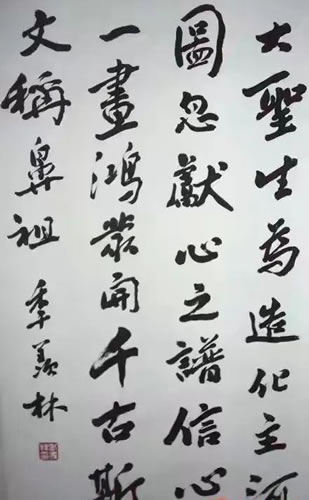 大聖生為造化主河
圖忽獻心之譜信心
一畫鴻蒙開千古斯
文稱鼻祖
季羨林